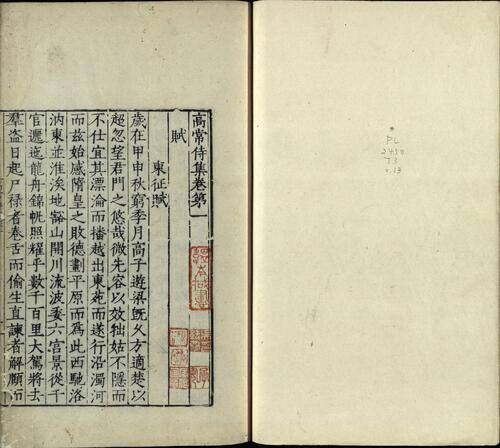 高常侍集卷第一
賦
東征賦
歲在甲申秋窮季月高子遊梁旣久方適楚以
超忽望君門之悠哉微先容以效拙姑不隱而
不仕宜其漂淪而播越出東苑而遂行沿濁河
而兹始感隋皇之敗德劃平原而為此西馳洛
汭東並淮涘地豁山開川流波委六宮景從千
官邐迤龍舟錦帆照耀乎數千百里大駕將去
羣盗日起尸禄者卷舌而偷生直諫者解頤而
PL
2450
T3
v.13